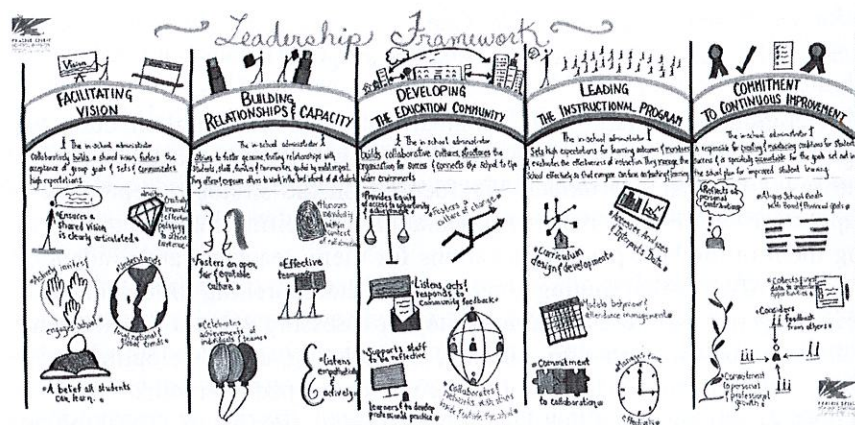 Leadership Framework
Vision
FACILITATING
VISION
The in-school administrator
Collaboratively builds a shared vision, fosters the
acceptance of group goals & sets & communicates
high expectations
Ensures a
shared vision
is clearly articulated
Actively invites
engages school
Understands
local national &
global trends
A belief all students
can learn.
BUILDING
RELATIONSHIPS & CAPACITY
The in-school administrator
strives to foster genuine, trusting relationships with
students, staff, families & communities guided by mutual respect.
Fosters an open,
fair & equitable
culture
Honours
individuality
within
context of
collaboration
Effective
teams
Celebrates
achievements of
individuals & teams
Listens
empathetically &
actively
DEVELOPING
THE EDUCATION COMMUNITY
The in-school administrator
builds collaborative cultures, structures the
organization for success & connects the school to the
wider environments
Provides Equity
Fosters a
culture of change
Listens, acts &
responds to
community feedback
Supports staff
to be reflective
learners & to develop
professional practice
Collaborates &
networks with others
inside & outside the school
LEADING
THE INSTRUCTIONAL PROGRAM
The in-school administrator
Sets high expectations for learning outcomes & monitors
& evaluates the effectiveness of instruction. They manage the
school effectively so that everyone can focus on teaching & learning
Curriculum
design & development
Interprets Data
attendance management
Commitment
to collaboration
Manages time
effectively
COMMITMENT
TO CONTINUOUS IMPROVEMENT
The in-school administrator
is responsible for creating & maintaining conditions for student
success & is specifically accountable for the goals set out in
the school plan for improved student learning.
Reflects on
personal
contributions
Aligns School Goals
with Board & Provincial goals
Considers
feedback
from others
Commitment
to personal
& professional
growth